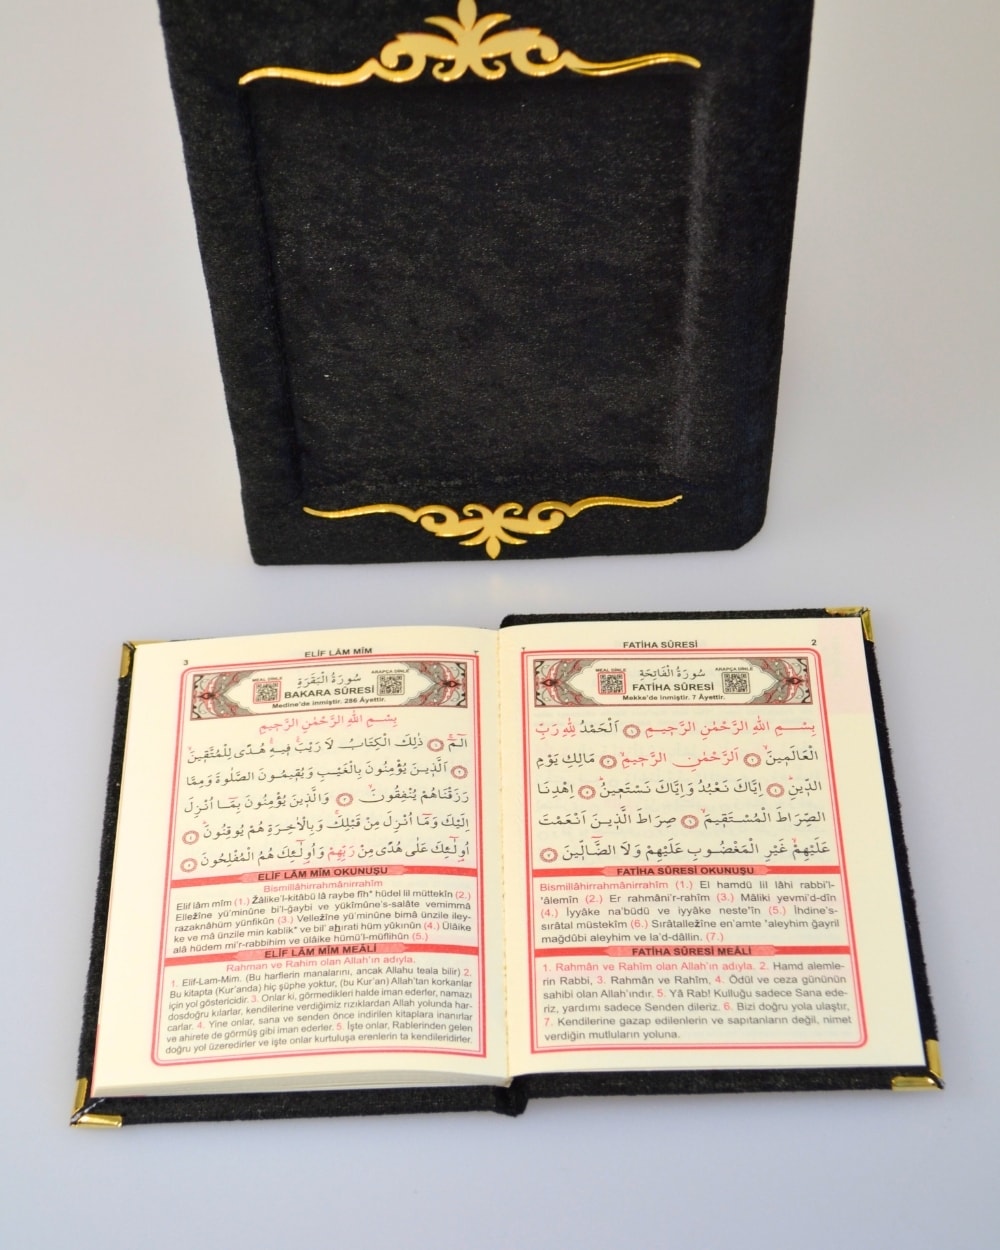 FATİHA SÛRESİ
2
MEAL DİNLE
سُورَةُ الْفَاتِحَةِ
ARAPÇA DİNLE
FATİHA SÛRESİ
Mekke'de inmiştir. 7 Âyettir.
بِسْمِ اللهِ الرَّحْمٰنِ الرَّحِيمِ ١ اَلْحَمْدُ لِلّٰهِ رَبِّ
الْعَالَمِينَ ٢ اَلرَّحْمٰنِ الرَّحِيمِ ٣ مَالِكِ يَوْمِ
الدِّينِ ٤ اِيَّاكَ نَعْبُدُ وَاِيَّاكَ نَسْتَعِينُ ٥ اِهْدِنَا
الصِّرَاطَ الْمُسْتَقِيمَ ٦ صِرَاطَ الَّذِينَ اَنْعَمْتَ
عَلَيْهِمْ غَيْرِ الْمَغْضُوبِ عَلَيْهِمْ وَلَا الضَّالِّينَ ٧
FATİHA SÛRESİ OKUNUŞU
Bismillâhirrahmânirrahîm (1.) El hamdü lil lâhi rabbi'l-
'âlemîn (2.) Er rahmâni'r-rahîm (3.) Mâliki yevmi'd-dîn
(4.) İyyâke na'büdü ve iyyâke neste'în (5.) İhdine's-
sırâtal müstekîm (6.) Sırâtallezîne en'amte 'aleyhim ğayril
mağdûbi aleyhim ve la'd-dâllin. (7.)
FATİHA SÛRESİ MEÂLİ
1. Rahmân ve Rahîm olan Allah'ın adıyla. 2. Hamd alemle-
rin Rabbi, 3. Rahmân ve Rahîm, 4. Ödül ve ceza gününün
sahibi olan Allah'ındır. 5. Yâ Rab! Kulluğu sadece Sana ede-
riz, yardımı sadece Senden dileriz. 6. Bizi doğru yola ulaştır,
7. Kendilerine gazap edilenlerin ve sapıtanların değil, nimet
verdiğin mutluların yoluna.
3
ELİF LÂM MÎM
MEAL DİNLE
سُورَةُ الْبَقَرَةِ
ARAPÇA DİNLE
BAKARA SÛRESİ
Medine'de inmiştir. 286 Âyettir.
بِسْمِ اللهِ الرَّحْمٰنِ الرَّحِيمِ
الٓمٓ ١ ذٰلِكَ الْكِتَابُ لَا رَيْبَ فِيهِ هُدًى لِلْمُتَّقِينَ
٢ اَلَّذِينَ يُؤْمِنُونَ بِالْغَيْبِ وَيُقِيمُونَ الصَّلٰوةَ وَمِمَّا
رَزَقْنَاهُمْ يُنْفِقُونَ ٣ وَالَّذِينَ يُؤْمِنُونَ بِمَا اُنْزِلَ
اِلَيْكَ وَمَا اُنْزِلَ مِنْ قَبْلِكَ وَبِالْاٰخِرَةِ هُمْ يُوقِنُونَ ٤
اُولٰئِكَ عَلٰى هُدًى مِنْ رَبِّهِمْ وَاُولٰئِكَ هُمُ الْمُفْلِحُونَ ٥
ELİF LÂM MÎM OKUNUŞU
Bismillâhirrahmânirrahîm
Elif lâm mîm (1.) Zâlike'l-kitâbü lâ raybe fîh* hüdel lil müttekîn (2.)
Ellezîne yü'minûne bi'l-ğaybi ve yükîmûne's-salâte vemimmâ
razaknâhüm yünfikûn (3.) Vellezîne yü'minûne bimâ ünzile iley-
ke ve mâ ünzile min kablik* ve bil' ahırati hüm yûkınûn (4.) Ülâike
alâ hüdem mi'r-rabbihim ve ülâike hümü'l-müflihûn (5.)
ELİF LÂM MÎM MEÂLİ
Rahman ve Rahim olan Allah'ın adıyla.
1. Elif-Lam-Mim. (Bu harflerin manalarını, ancak Allahu teala bilir) 2.
Bu kitapta (Kur'anda) hiç şüphe yoktur, (bu Kur'an) Allah'tan korkanlar
için yol göstericidir. 3. Onlar ki, görmedikleri halde iman ederler, namazı
dosdoğru kılarlar, kendilerine verdiğimiz rızıklardan Allah yolunda har-
carlar. 4. Yine onlar, sana ve senden önce indirilen kitaplara inanırlar
ve ahirete de görmüş gibi iman ederler. 5. İşte onlar, Rablerinden gelen
doğru yol üzeredirler ve işte onlar kurtuluşa erenlerin ta kendileridirler.